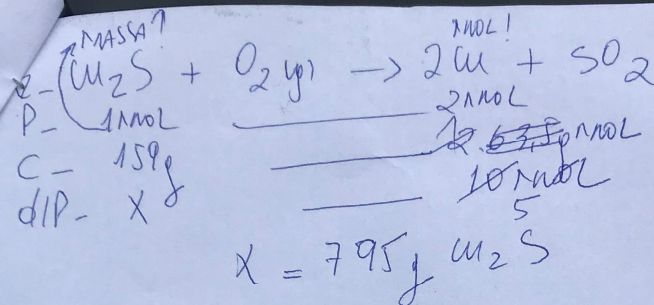 MASSA? nMOL!
e_ Cu2S + O2(g) → 2Cu + SO2
P_ 1nmol 2nmol
C_ 159g 12. 63,5g nmol
d/P_ X 10nmol
5
X = 795g Cu2S